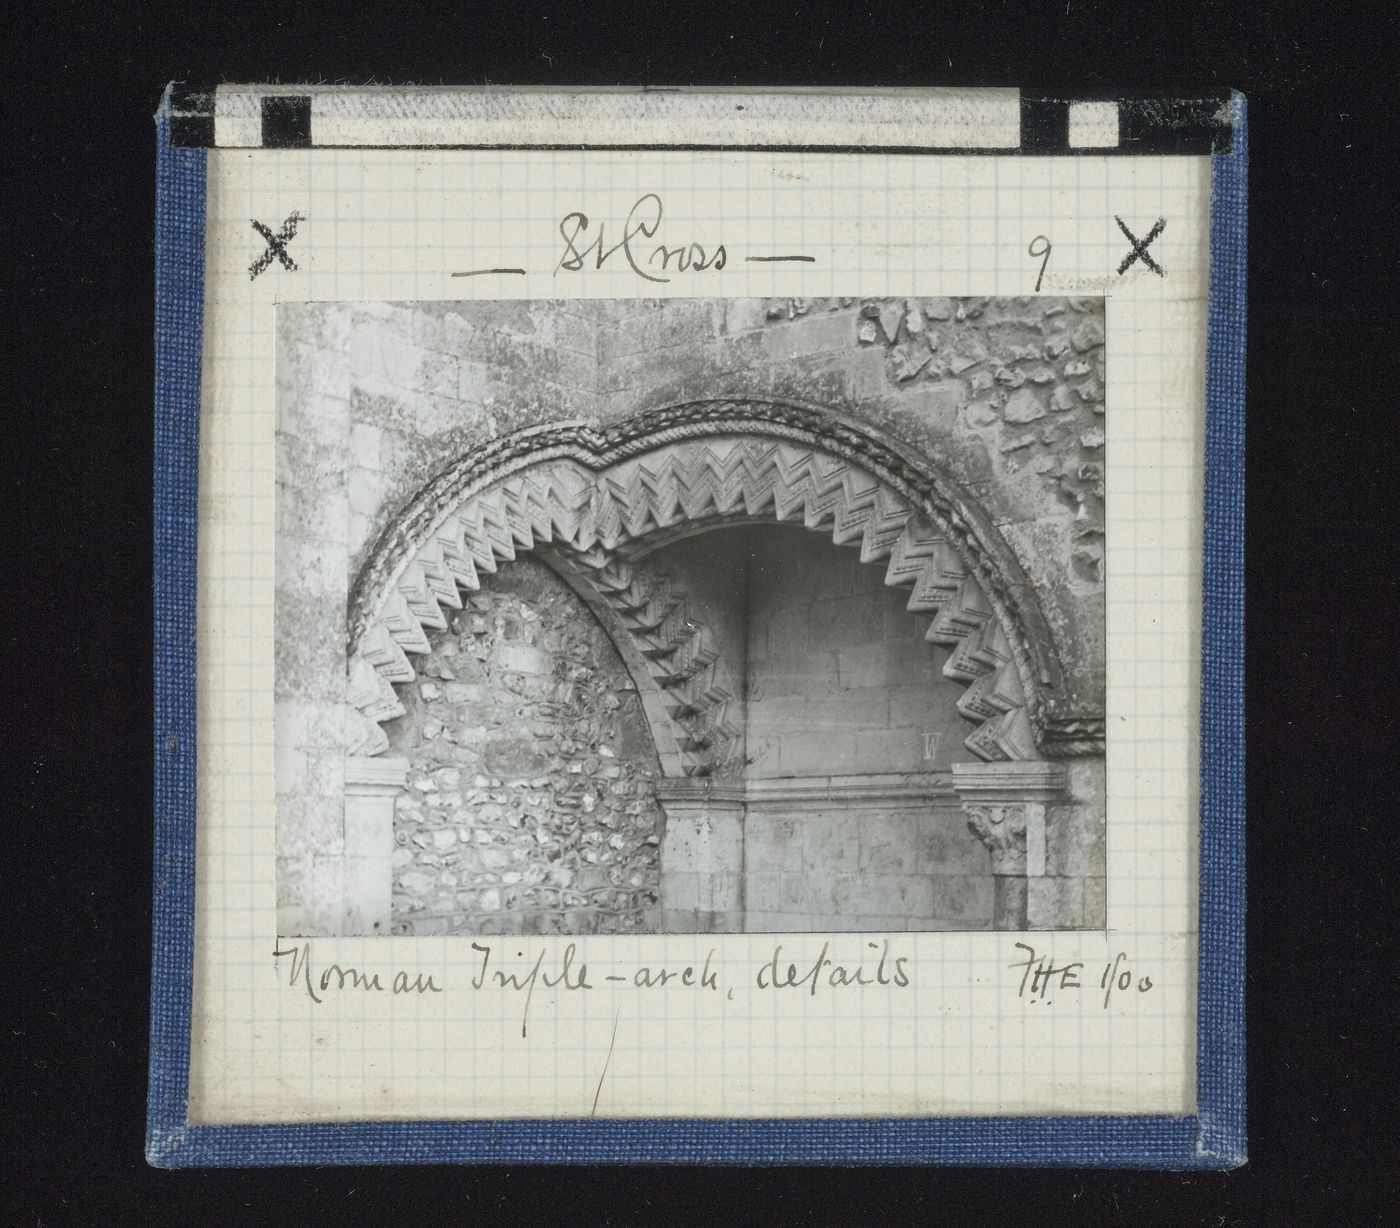 X — St Cross — 9 X
Norman Triple-arch, details FHE 1/00